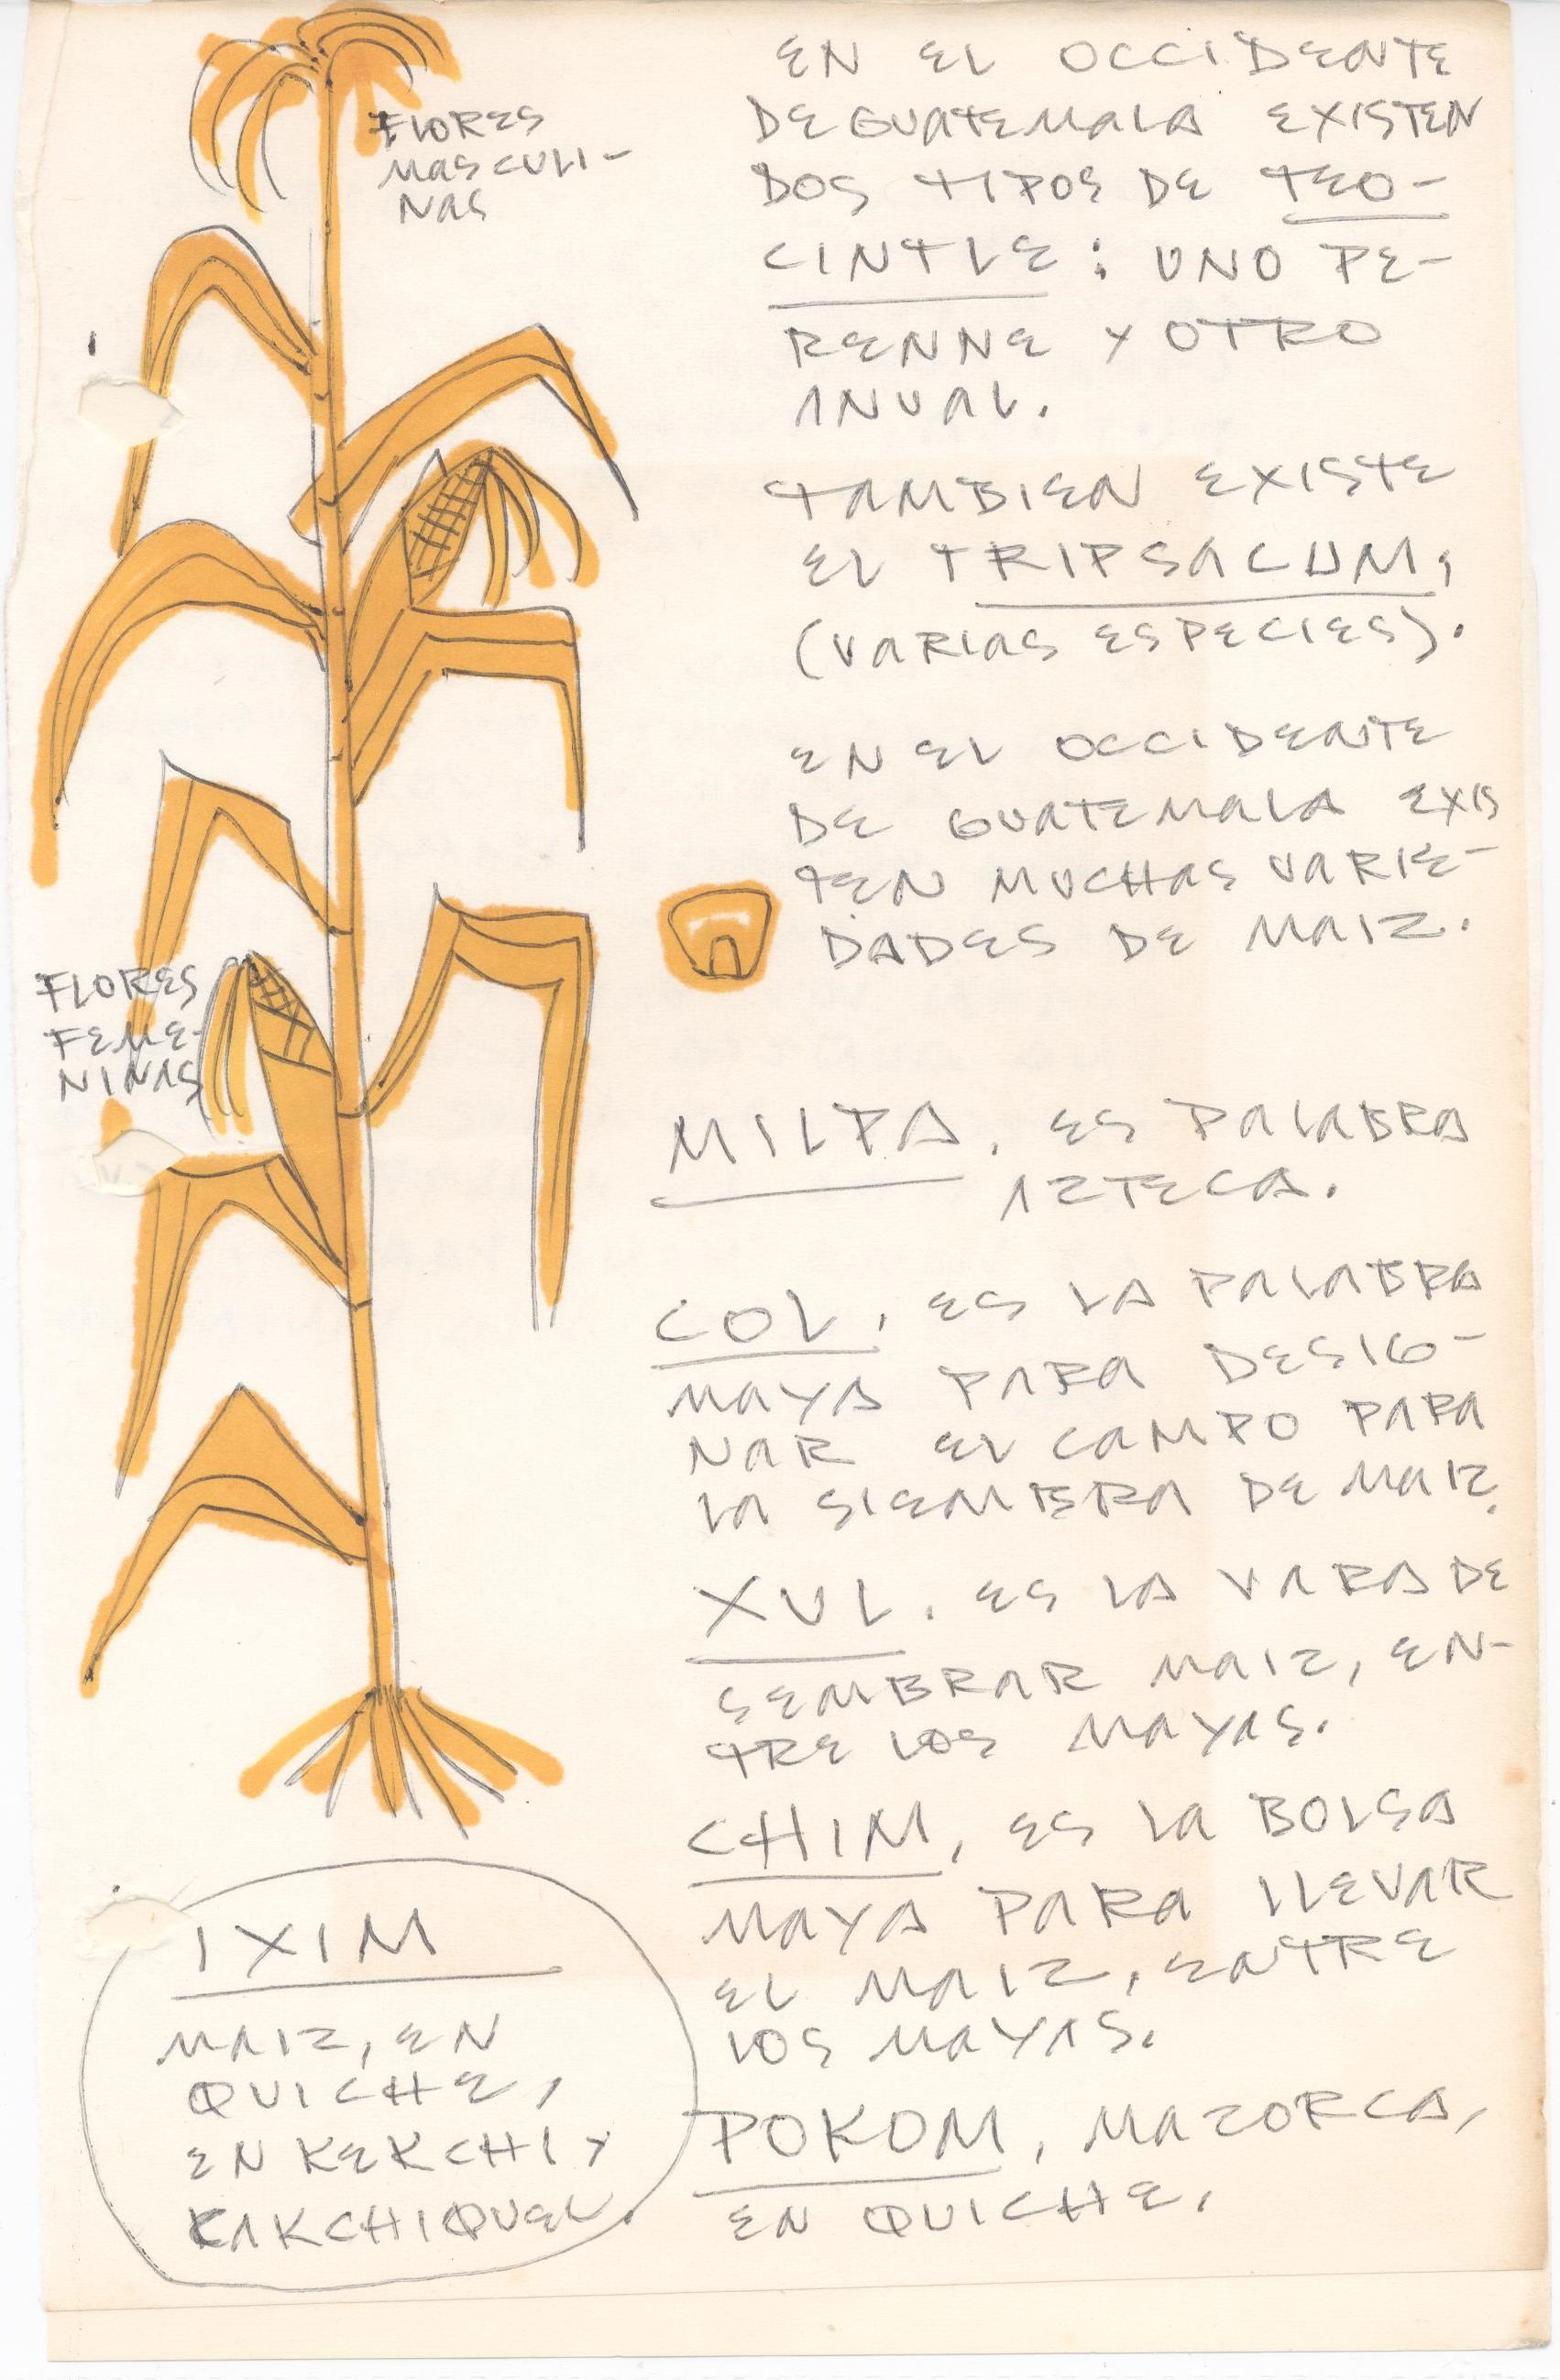 FLORES
MASCULI-
NAS
EN EL OCCIDENTE
DE GUATEMALA EXISTEN
DOS TIPOS DE TEO-
CINTLE: UNO PE-
RENNE Y OTRO
ANUAL.
TAMBIEN EXISTE
EL TRIPSACUM,
(VARIAS ESPECIES).
EN EL OCCIDENTE
DE GUATEMALA EXIS
TEN MUCHAS VARIE-
DADES DE MAIZ.
FLORES
FEME-
NINAS
MILPA, ES PALABRA
AZTECA.
COL, ES LA PALABRA
MAYA PARA DESIG-
NAR EL CAMPO PARA
LA SIEMBRA DE MAIZ.
XUL, ES LA VARA DE
SEMBRAR MAIZ, EN-
TRE LOS MAYAS.
CHIM, ES LA BOLSA
MAYA PARA LLEVAR
EL MAIZ, ENTRE
LOS MAYAS.
POKOM, MAZORCA,
EN QUICHE,
IXIM
MAIZ, EN
QUICHE,
EN KEKCHI Y
KAKCHIQUEL.